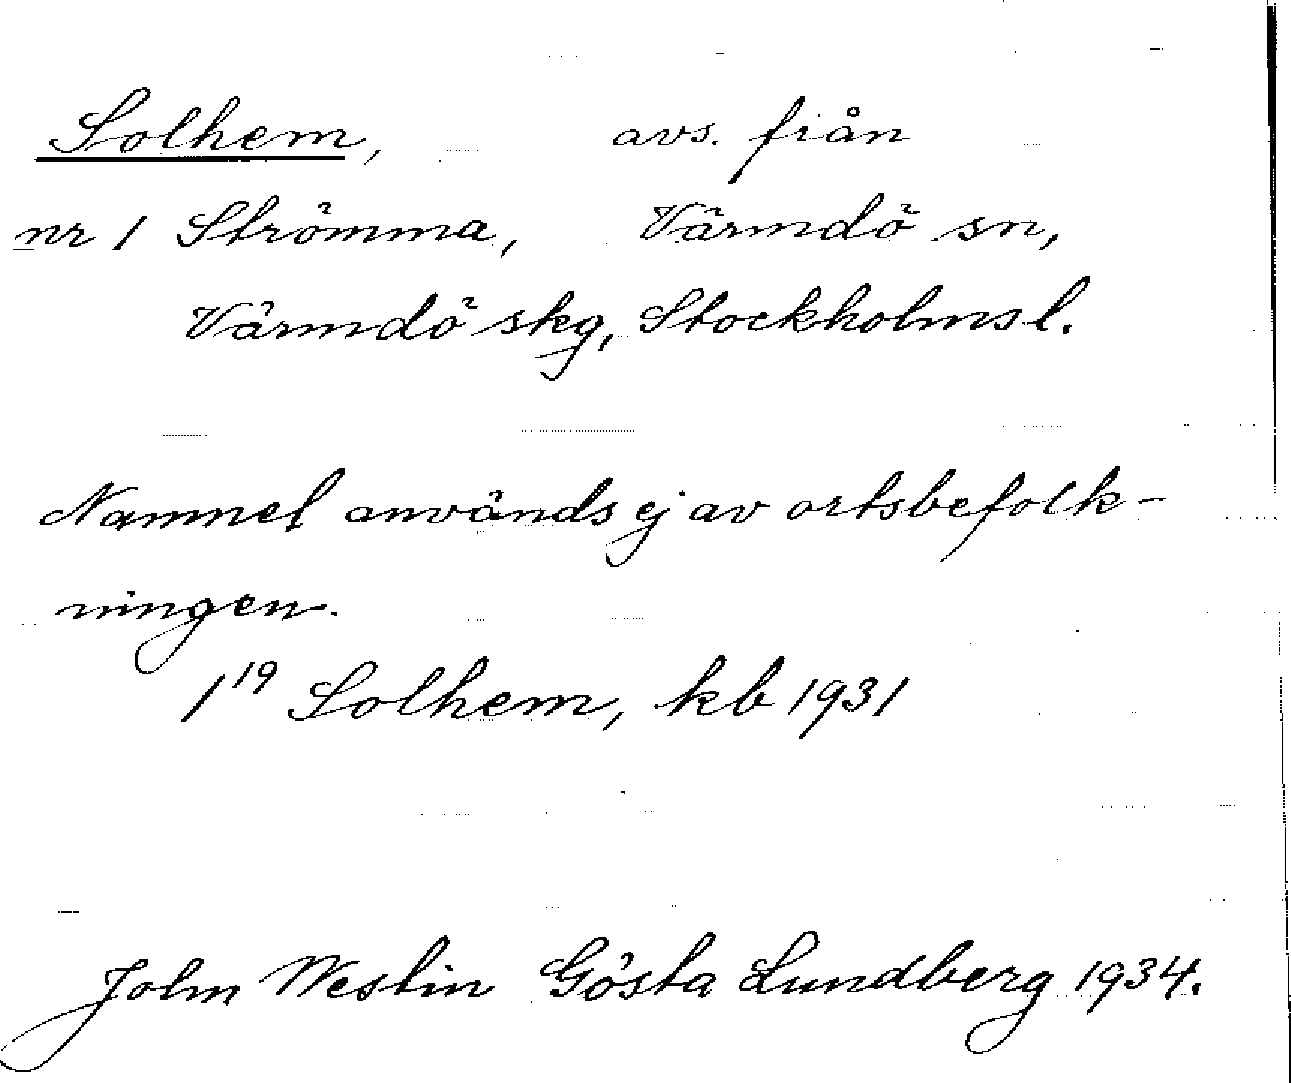 Solhem, avs. från
nr 1 Strömma, Värmdö sn,
Värmdö skg, Stockholms l.
Namnet används ej av ortsbefolk-
ningen.
1¹⁹ Solhem, kb 1931
John Westin Gösta Lundberg 1934.